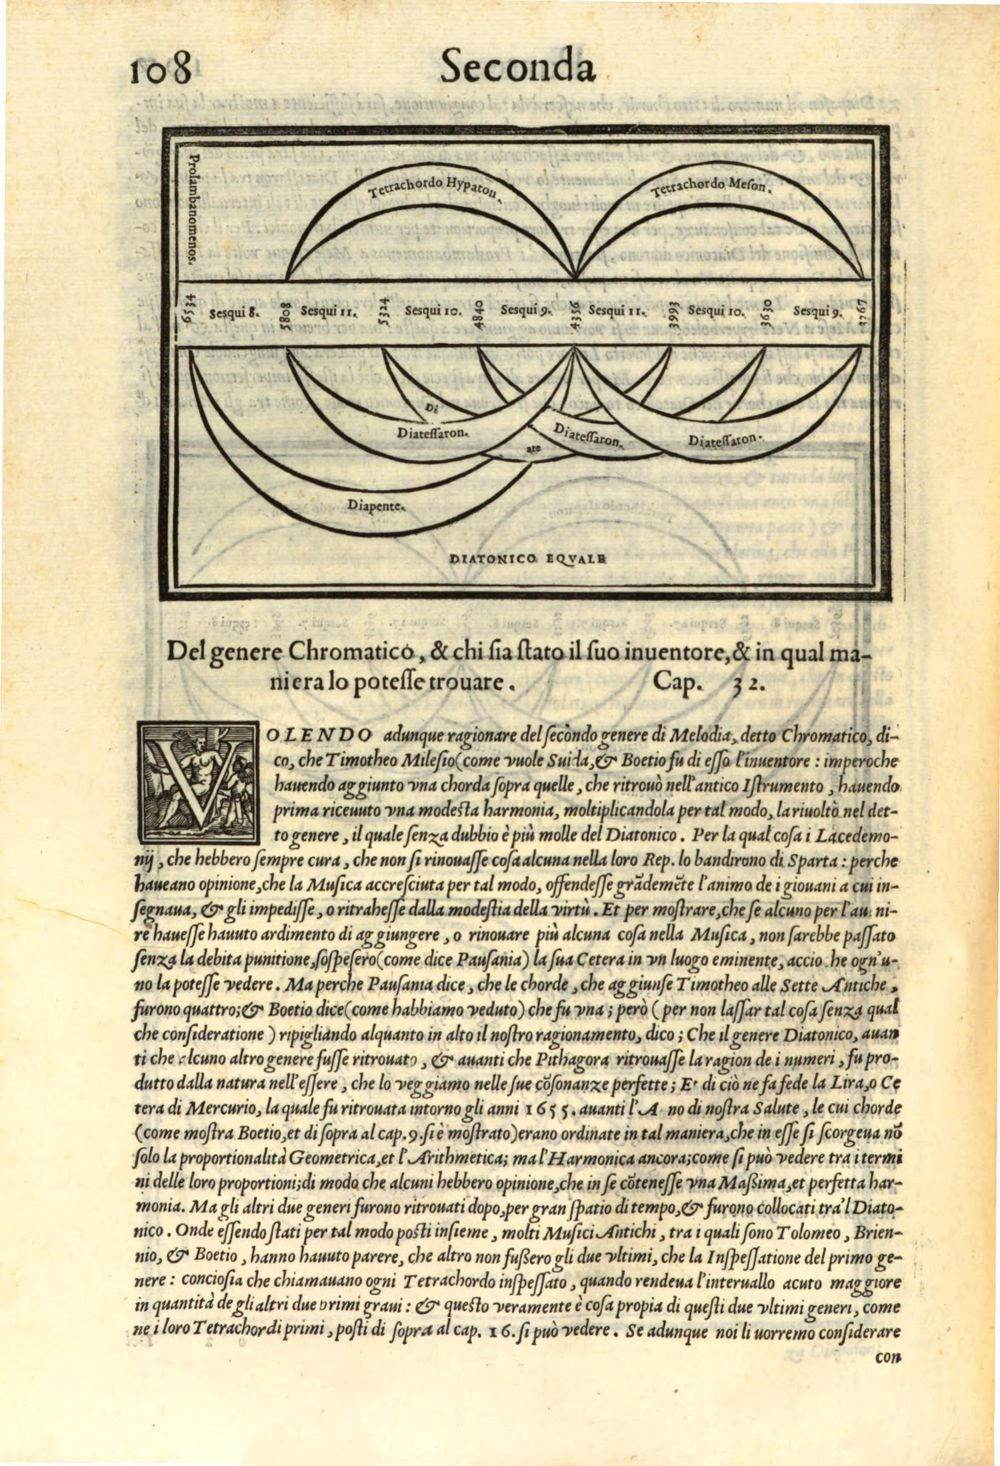 108 Seconda
Prolambanomenos.
Tetrachordo Hypaton.
Tetrachordo Meson.
6534 Sesqui 8. 5808 Sesqui 11. 5324 Sesqui 10. 4840 Sesqui 9. 4356 Sesqui 11. 3993 Sesqui 10. 3630 Sesqui 9. 3267
Di
Diatessaron. Diatessaron. Diatessaron.
ate
Diapente.
DIATONICO EQVALE
Del genere Chromatico, & chi ſia ſtato il ſuo inuentore, & in qual ma-
niera lo poteſſe trouare. Cap. 32.
VOLENDO adunque ragionare del ſecõdo genere di Melodia, detto Chromatico, di-
co, che Timotheo Mileſio (come vuole Suida, & Boetio fu di eſſo l'inuentore: imperoche
hauendo aggiunto vna chorda ſopra quelle, che ritrouò nell'antico Iſtrumento, hauendo
prima riceuuto vna modeſta harmonia, moltiplicandola per tal modo, la riuoltò nel det-
to genere, il quale ſenza dubbio è più molle del Diatonico. Per la qual coſa i Lacedemo-
nij, che hebbero ſempre cura, che non ſi rinouaſſe coſa alcuna nella loro Rep. lo bandirono di Sparta: perche
haueano opinione, che la Muſica accreſciuta per tal modo, offendeſſe grãdemẽte l'animo de i giouani a cui in-
ſegnaua, & gli impediſſe, o ritraheſſe dalla modeſtia della virtù. Et per moſtrare, che ſe alcuno per l'au ni-
re haueſſe hauuto ardimento di aggiungere, o rinouare più alcuna coſa nella Muſica, non ſarebbe paſſato
ſenza la debita punitione, ſoſpeſero (come dice Pauſania) la ſua Cetera in vn luogo eminente, accio he ogn'u-
no la poteſſe vedere. Ma perche Pauſania dice, che le chorde, che aggiunſe Timotheo alle Sette Antiche,
furono quattro; & Boetio dice (come habbiamo veduto) che fu vna; però (per non laſſar tal coſa ſenza qual
che conſideratione) ripigliando alquanto in alto il noſtro ragionamento, dico; Che il genere Diatonico, auan
ti che alcuno altro genere fuſſe ritrouato, & auanti che Pithagora ritrouaſſe la ragion de i numeri, fu pro-
dutto dalla natura nell'eſſere, che lo veggiamo nelle ſue cõſonanze perfette; Et di ciò ne fa fede la Lira, o Ce
tera di Mercurio, la quale fu ritrouata intorno gli anni 1655. auanti l'A no di noſtra Salute, le cui chorde
(come moſtra Boetio, et di ſopra al cap. 9. ſi è moſtrato) erano ordinate in tal maniera, che in eſſe ſi ſcorgeua nõ
ſolo la proportionalità Geometrica, et l'Arithmetica; ma l'Harmonica ancora; come ſi può vedere tra i termi
ni delle loro proportioni; di modo che alcuni hebbero opinione, che in ſe cõteneſſe vna Maſſima, et perfetta har-
monia. Ma gli altri due generi furono ritrouati dopo, per gran ſpatio di tempo, & furono collocati tra'l Diato-
nico. Onde eſſendo ſtati per tal modo poſti inſieme, molti Muſici Antichi, tra i quali ſono Tolomeo, Brien-
nio, & Boetio, hanno hauuto parere, che altro non fuſſero gli due vltimi, che la Inſpeſſatione del primo ge-
nere: concioſia che chiamauano ogni Tetrachordo inſpeſſato, quando rendeua l'interuallo acuto maggiore
in quantità de gli altri due primi graui: & queſto veramente è coſa propia di queſti due vltimi generi, come
ne i loro Tetrachordi primi, poſti di ſopra al cap. 16. ſi può vedere. Se adunque noi li uorremo conſiderare
con